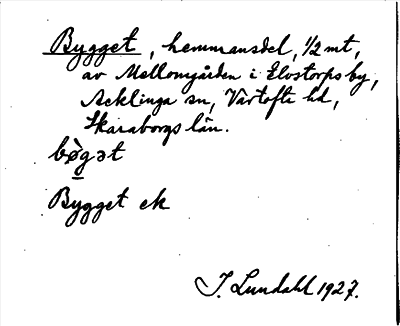 Bygget, hemmansdel, 1/2 mt,
av Mellomgården i Elvstorps by,
Acklinga sn, Vartofta hd,
Skaraborgs län.
bøgət
Bygget ek
I. Lundahl 1927.